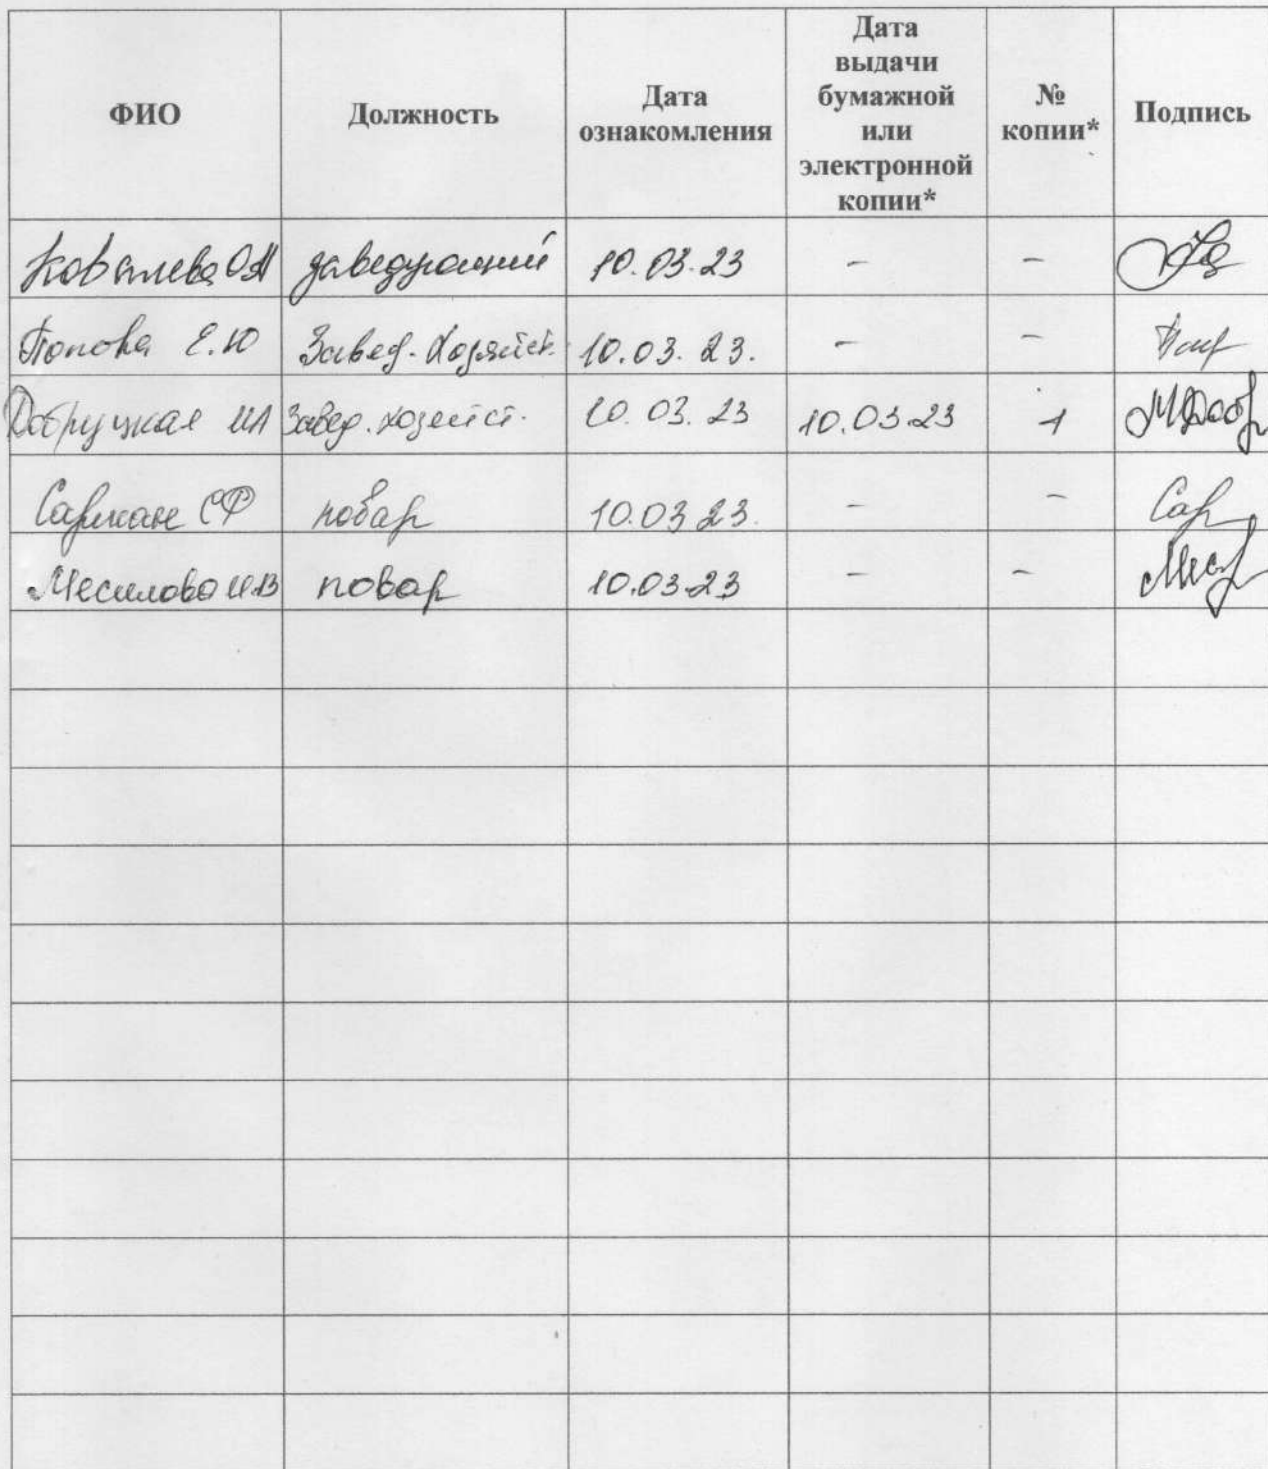 ФИО
Должность
Дата
ознакомления
Дата
выдачи
бумажной
или
электронной
копии*
№
копии*
Подпись
Ковалева ОА заведующий 10.03.23 – –
Попова Е.Ю Завед. Хозяйст. 10.03.23. – –
Добруцкая Завед. хозейст. 10.03.23 10.03.23 1 МДобр
СФ повар 10.03.23. – – Сар
повар 10.03.23 – –